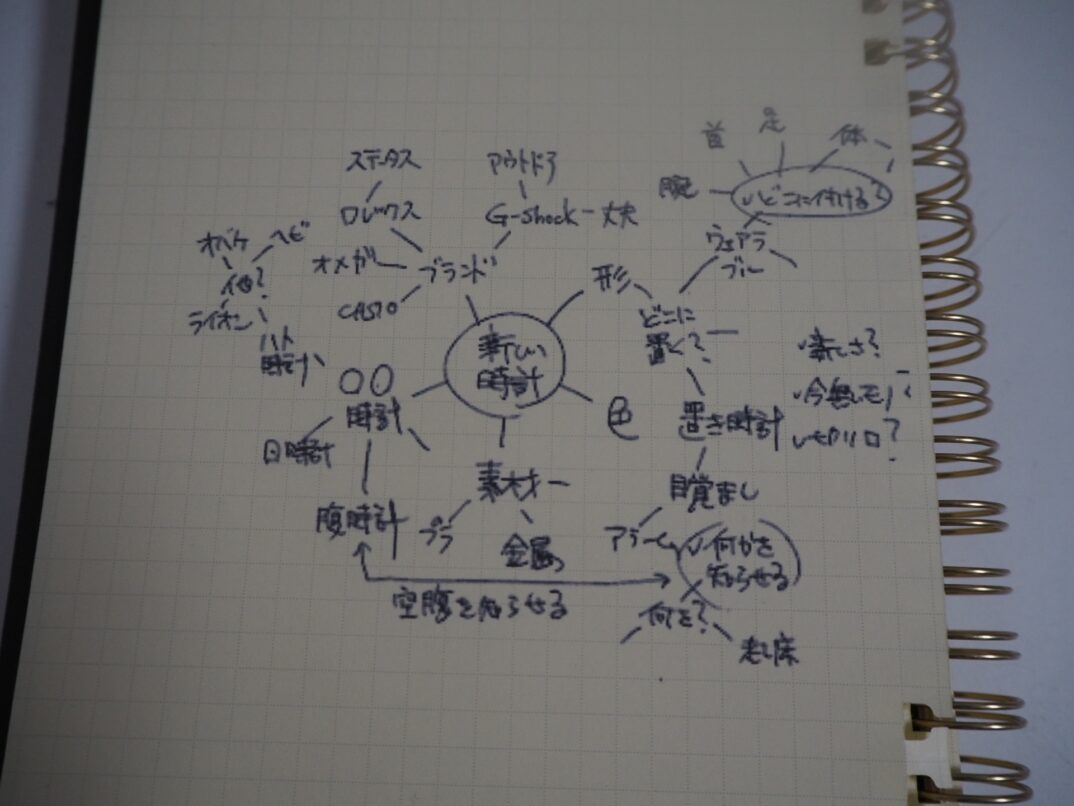 首
足
体
ステータス
アウトドア
腕
どこに付ける?
ロレックス
G-shock
丈夫
オバケ
ヘビ
ウェアラ
ブル
オメガ
ブランド
形
他?
CASIO
どこに
置く?
ライオン
ハト
時計
新しい
時計
新しさ?
○○
時計
色
置き時計
今無いモノ?
日時計
素材
目覚まし
腹時計
プラ
金属
アラーム
何かを
知らせる
空腹を知らせる
何を?
起床